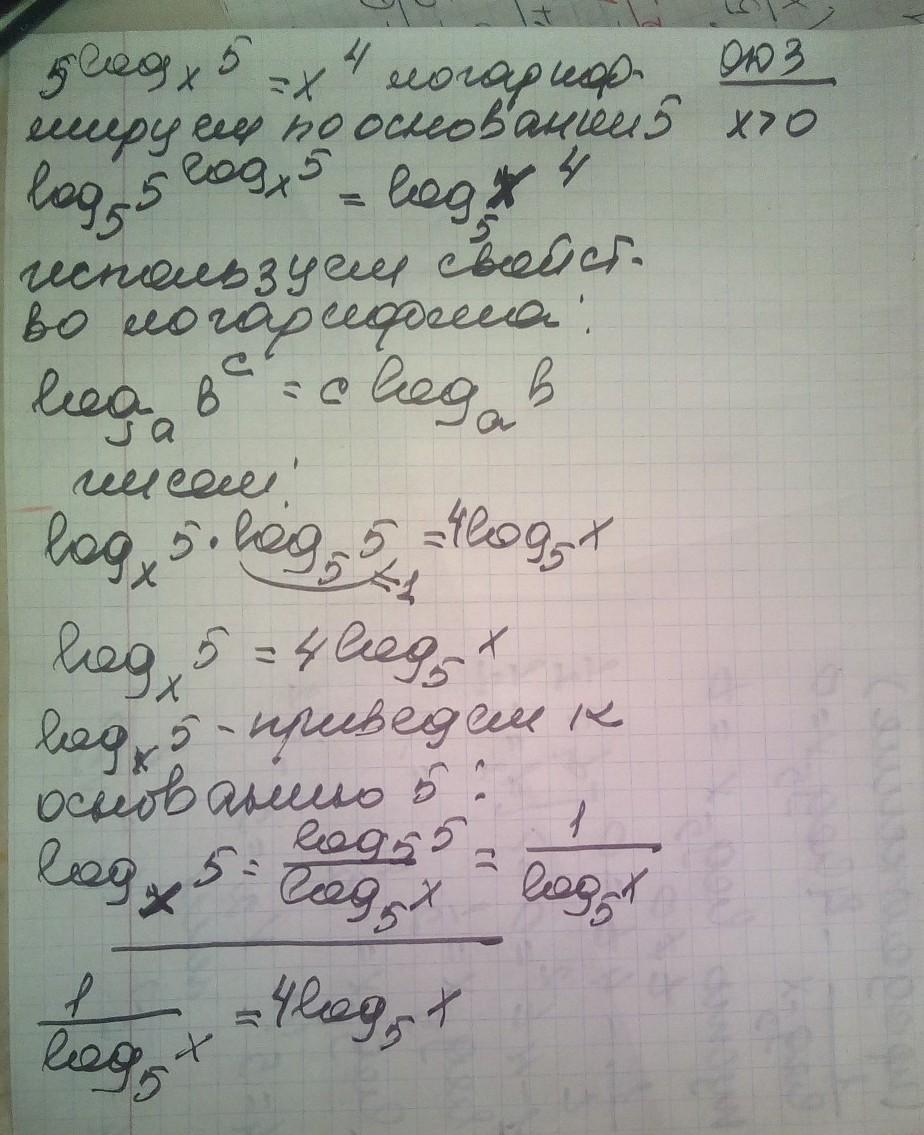 5^{log_x 5} = x^4 логариф- ОДЗ
мируем по основании 5 x > 0
log_5 5^{log_x 5} = log_5 x^4
используем свойст-
во логарифма:
log_a b^c = c log_a b
имеем:
log_x 5 · log_5 5 = 4 log_5 x
= 1
log_x 5 = 4 log_5 x
log_x 5 - приведем к
основанию 5:
log_x 5 = \frac{log_5 5}{log_5 x} = \frac{1}{log_5 x}
\frac{1}{log_5 x} = 4 log_5 x